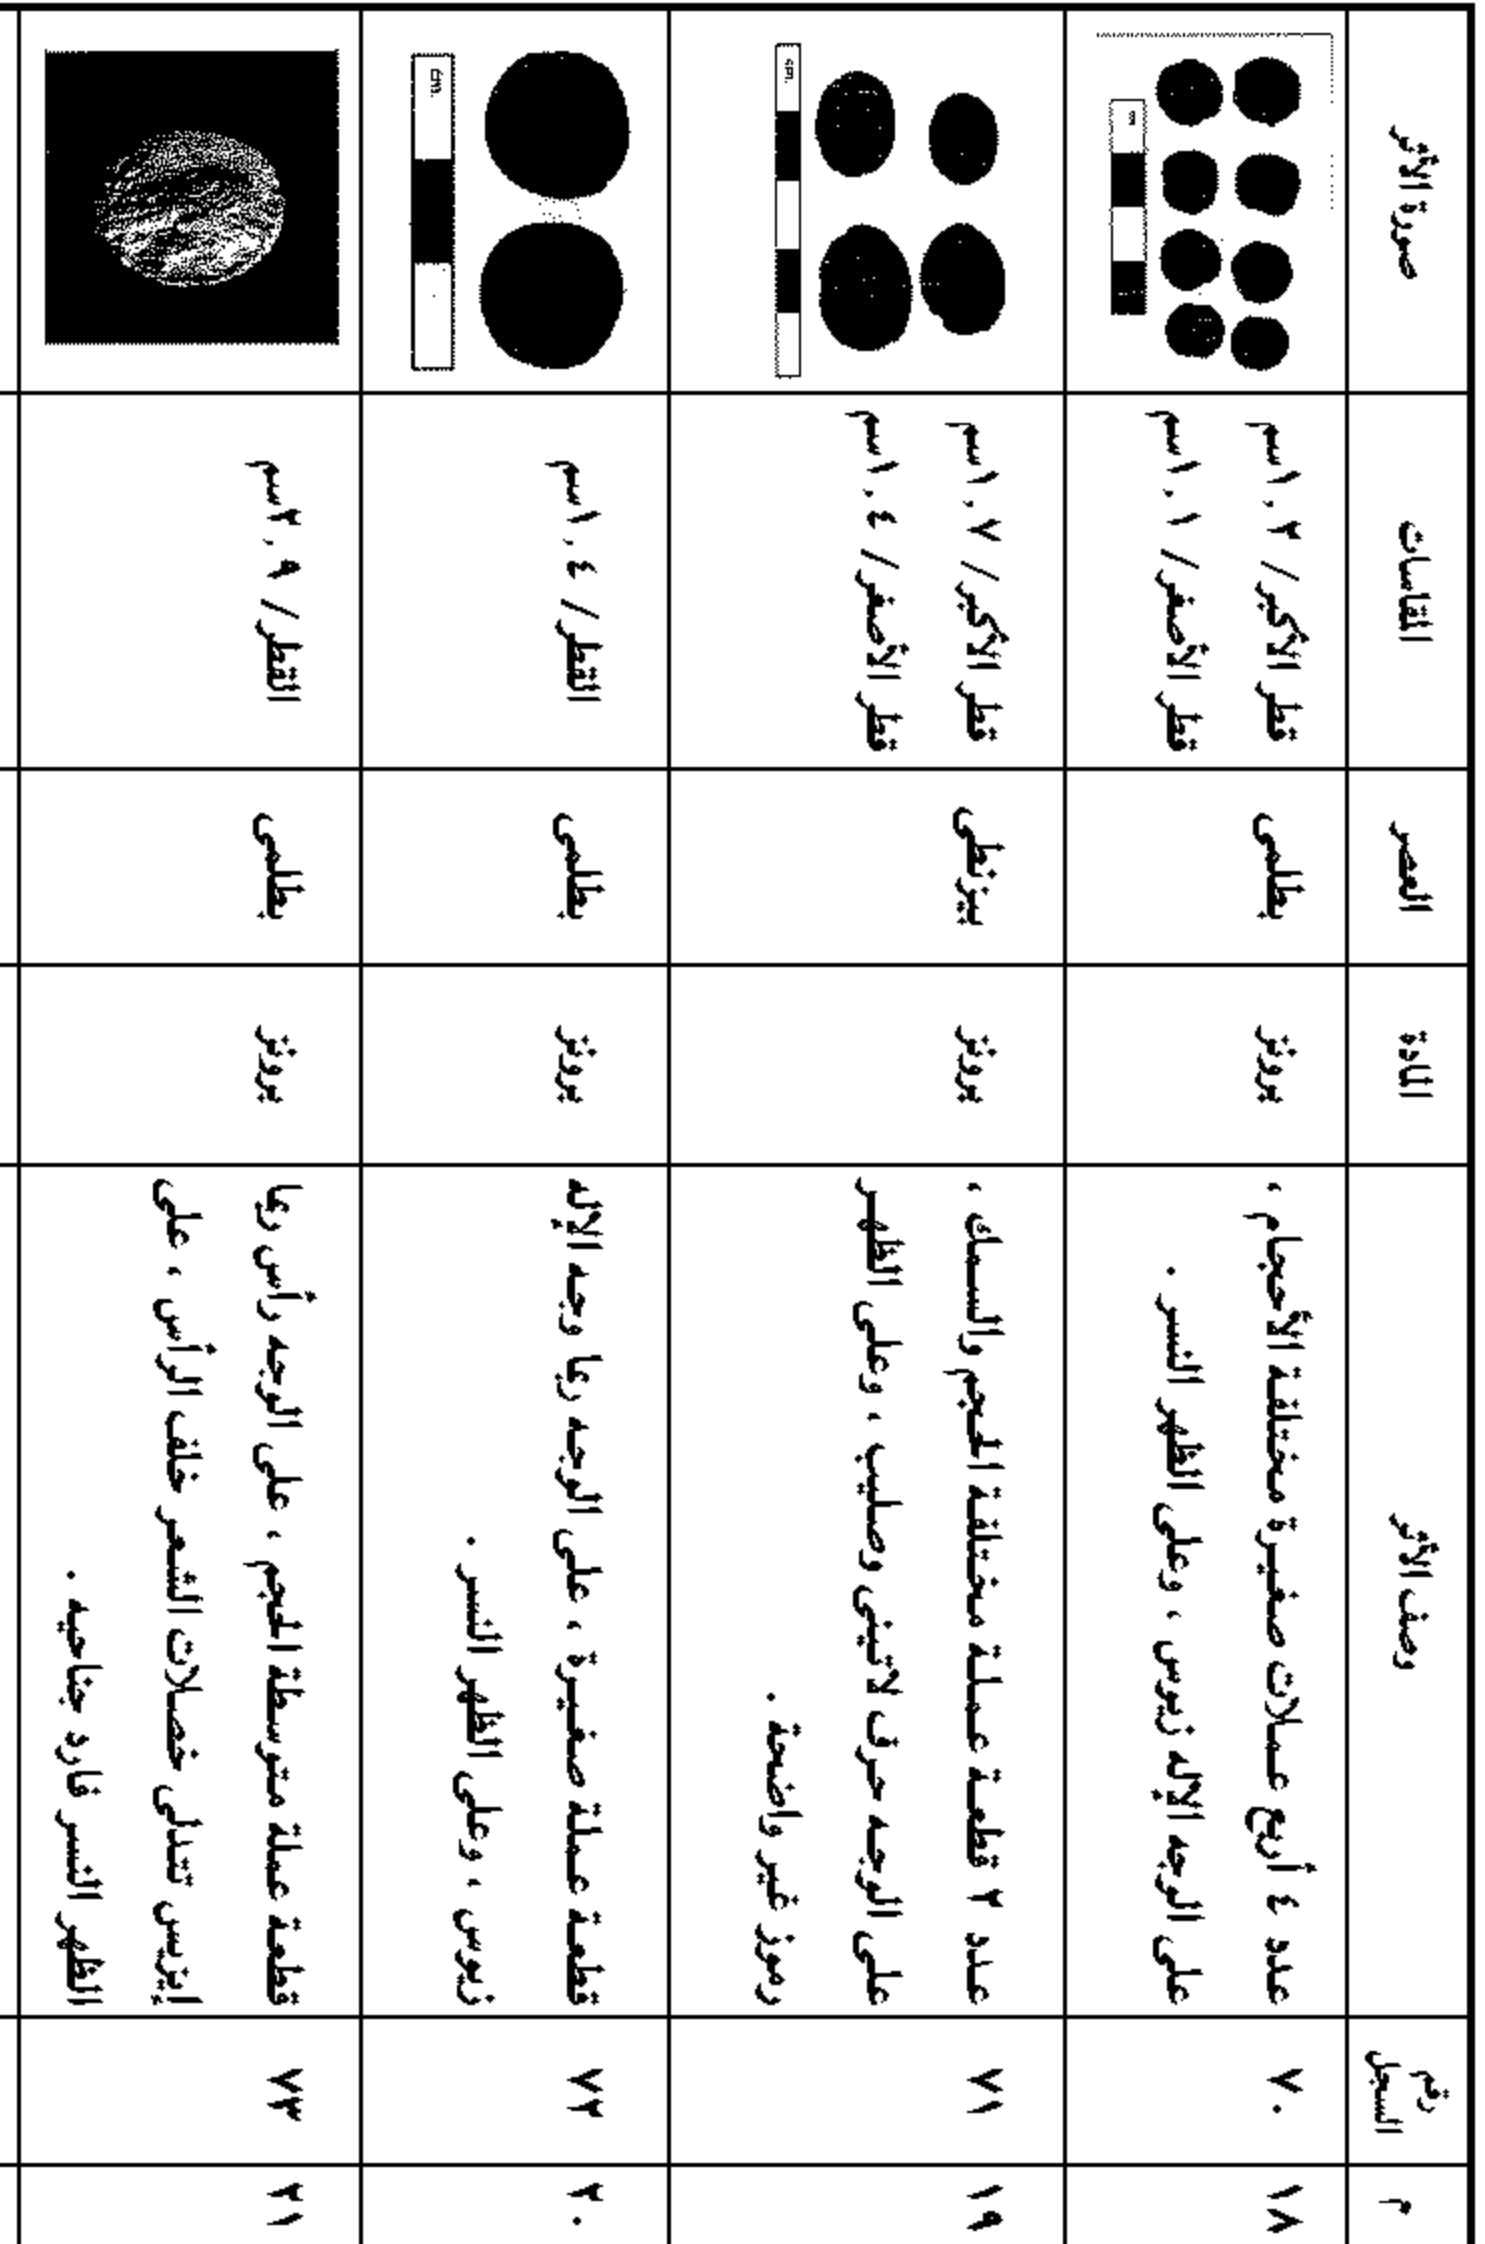 م
رقم
السجل
وصف الأثر
المادة
العصر
المقاسات
صورة الأثر
١٨
٧٠
عدد ٤ أربع عملات صغيرة مختلفة الأحجام ،
على الوجه الإله زيوس ، وعلى الظهر النسر .
برونز
بطلمى
قطر الأكبر/ ١,٢سم
قطر الأصغر/ ١,١سم
١٩
٧١
عدد ٢ قطعة عملة مختلفة الحجم والسمك ،
على الوجه حرف لاتينى وصليب ، وعلى الظهر
رموز غير واضحة .
برونز
بيزنطى
قطر الأكبر/ ١,٧سم
قطر الأصغر/ ١,٤سم
cm.
٢٠
٧٢
قطعة عملة صغيرة ، على الوجه ربما وجه الإله
زيوس ، وعلى الظهر النسر .
برونز
بطلمى
القطر/ ١,٤سم
cm.
٢١
٧٣
قطعة عملة متوسطة الحجم ، على الوجه رأس ربما
إيزيس تتدلى خصلات الشعر خلف الرأس ، على
الظهر النسر فارد جناحيه .
برونز
بطلمى
القطر/ ٢,٩سم